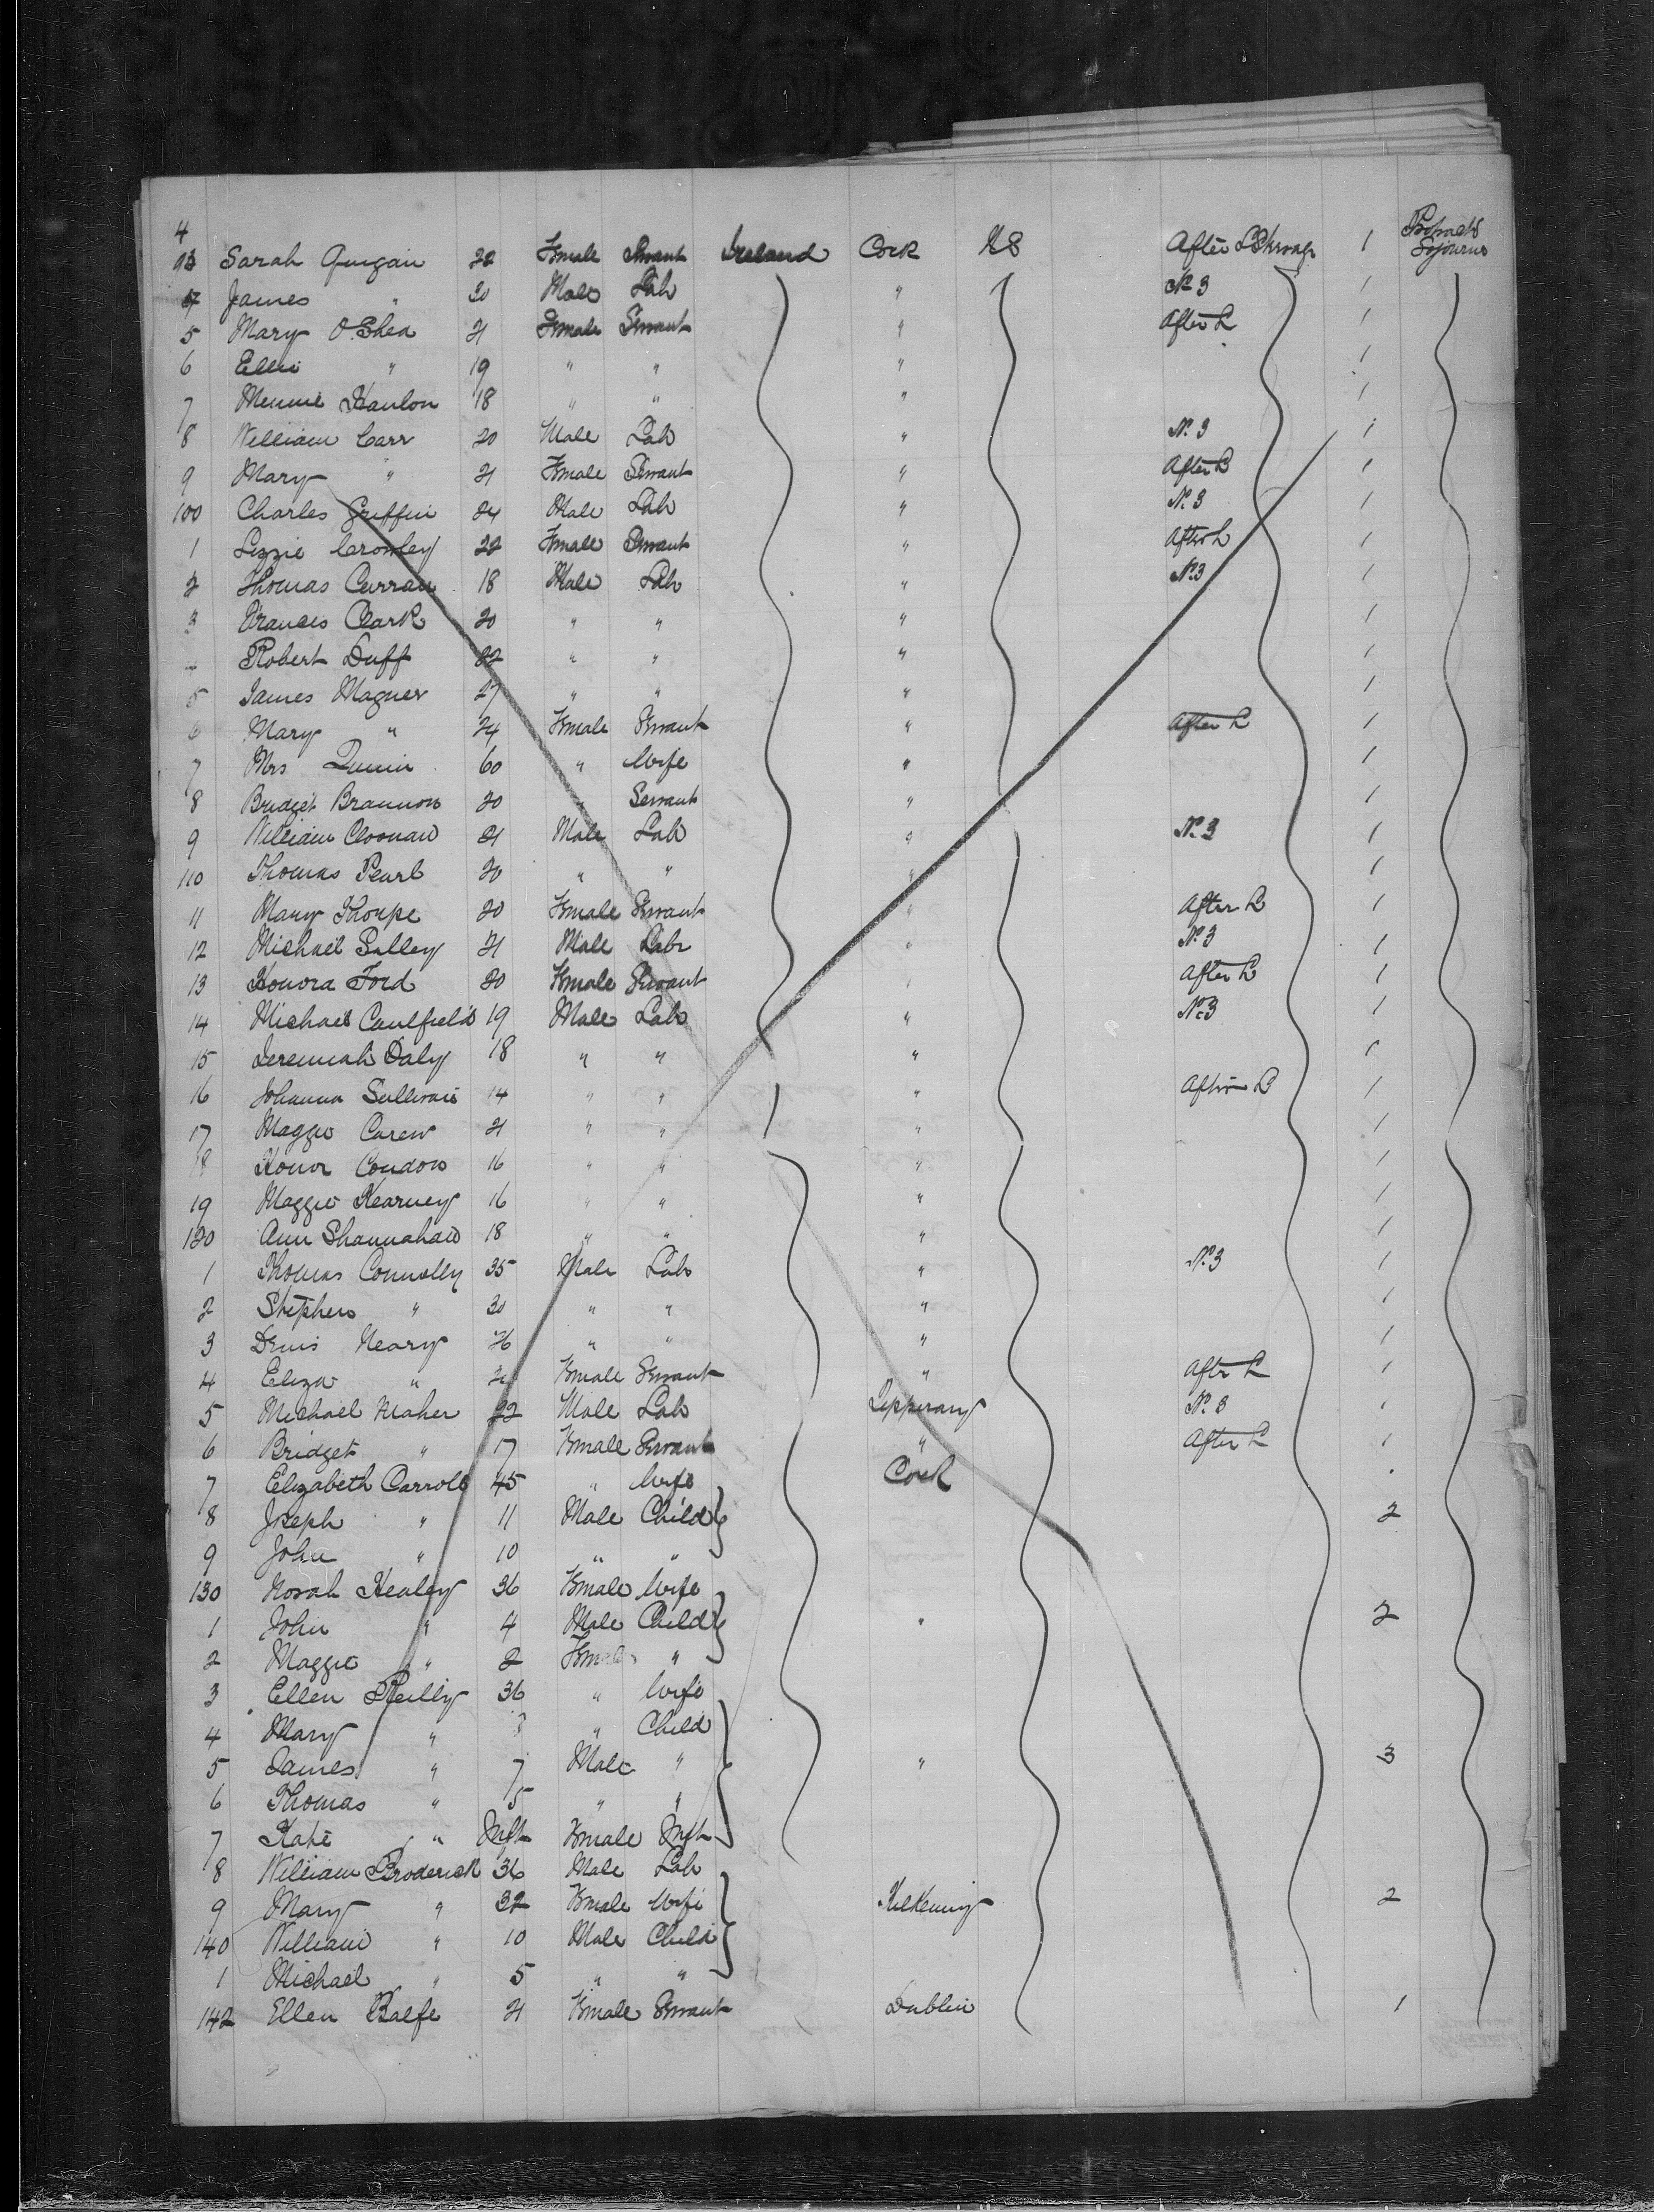 4
93 Sarah Quigan 22 Female Servant Ireland Cork US After Strange 1 Protracted Sojourn
4 James " 20 Male Lab " No 3 1
5 Mary O'Shea 21 Female Servant " After L 1
6 Ellen " 19 " " " 1
7 Minnie Hanlon 18 " " " 1
8 William Carr 20 Male Lab " No 3 1
9 Mary " 21 Female Servant " After L 1
100 Charles Griffin 24 Male Lab " No 3 1
1 Lizzie Crowley 22 Female Servant " After L 1
2 Thomas Curran 18 Male Lab " No 3 1
3 Francis Clark 20 " " " 1
Robert Duff 22 " " " 1
5 James Magner 27 " " " 1
6 Mary " 24 Female Servant " After L 1
7 Mrs Quinn 60 " Wife " 1
8 Bridget Brannon 20 " Servant " 1
9 William Cloonan 21 Male Lab " No 3 1
110 Thomas Pearl 20 " " " 1
11 Mary Thorpe 20 Female Servant " After L 1
12 Michael Salley 21 Male Labr " No 3 1
13 Honora Ford 20 Female Servant " After L 1
14 Michael Caulfield 19 Male Lab " No 3 1
15 Jeremiah Daly 18 " " " 1
16 Johanna Sullivan 14 " " " After L 1
17 Maggie Carew 21 " " " 1
18 Honor Condon 16 " " " 1
19 Maggie Kearney 16 " " " 1
120 Ann Shannahan 18 " " " 1
1 Thomas Connolly 35 Male Lab " No 3 1
2 Stephen " 30 " " " 1
3 Denis Neary 26 " " " 1
4 Eliza " Female Servant " After L 1
5 Michael Maher 22 Male Lab Tipperary No 3 1
6 Bridget " 17 Female Servant " After L 1
7 Elizabeth Carroll 45 " Wife Cork
8 Joseph " 11 Male Child 2
9 John " 10 " "
130 Norah Healey 36 Female Wife
1 John " 4 Male Child " 2
2 Maggie " 2 Female "
3 Ellen Reilly 36 " Wife
4 Mary " " Child
5 James " 7 Male " " 3
6 Thomas " 5 " "
7 Kate " Inft Female Inft
8 William Broderick 36 Male Lab
9 Mary " 32 Female Wife Kilkenny 2
140 William " 10 Male Child
1 Michael " 5 " "
142 Ellen Balfe 21 Female Servant Dublin 1